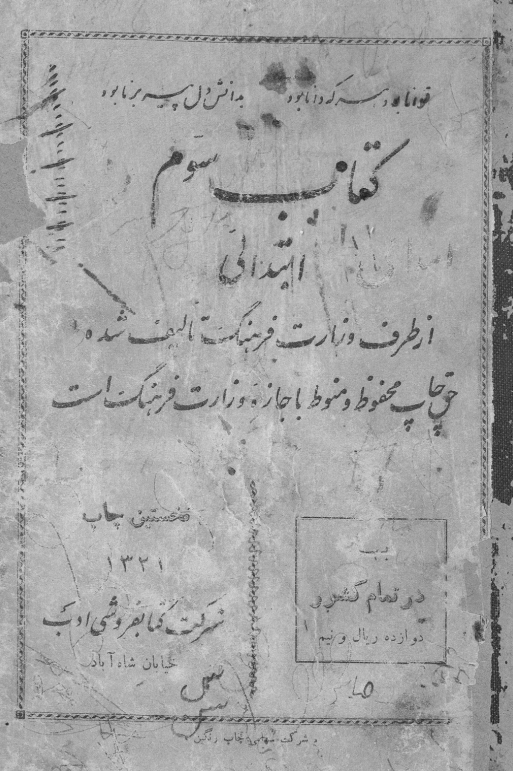 توانا بود هر که دانا بود بدانش دل پیر برنا بود
کتاب سوم
ابتدائی
از طرف وزارت فرهنگ تألیف شده
حق چاپ محفوظ و منوط باجازه وزارت فرهنگ است
نخستین چاپ
۱۳۲۱
شرکت کتابفروشی ادب
خیابان شاه آباد
بها
در تمام کشور
دوازده ریال و نیم
شرکت سهامی چاپ رنگین